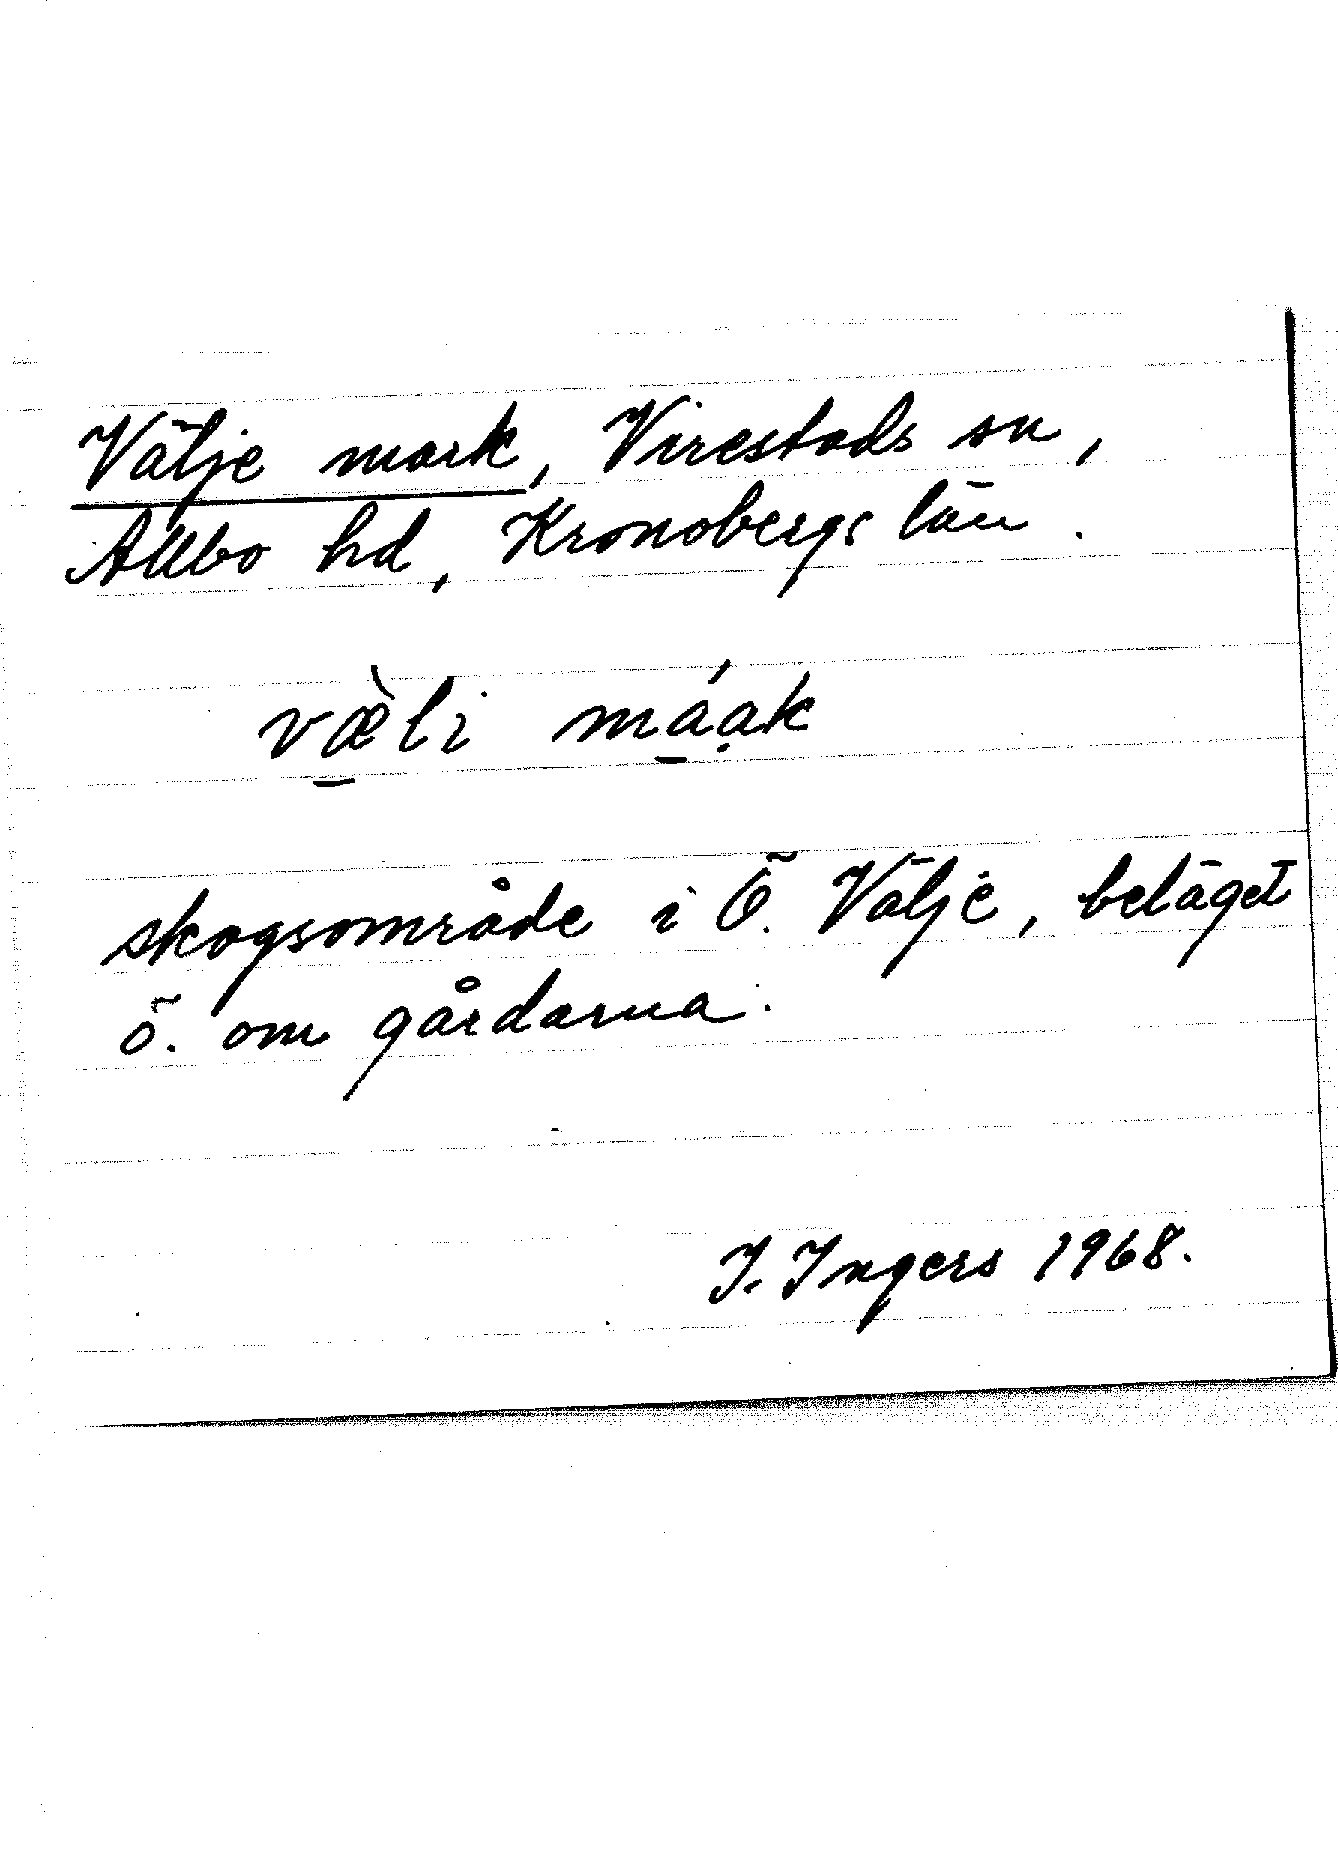 Välje mark, Virestads sn,
Allbo hd, Kronobergs län.
væ̠̀li má̠ạk
skogsområde i Ö. Välje, beläget
ö. om gårdarna.
I. Ingers 1968.